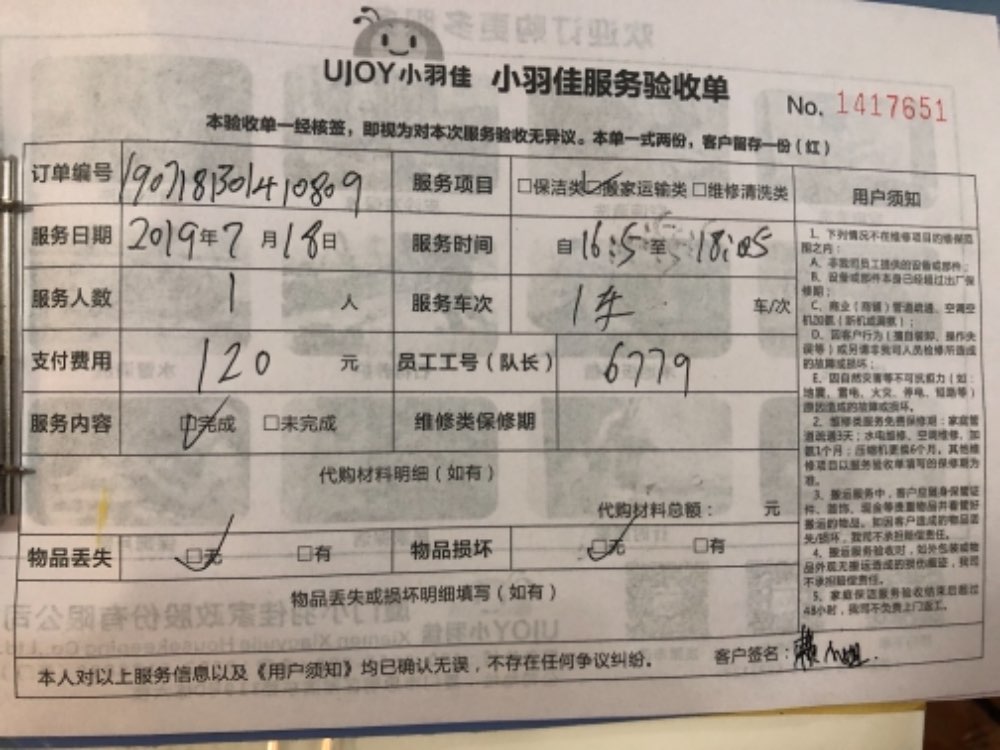 UJOY小羽佳 小羽佳服务验收单
No. 1417651
本验收单一经核签，即视为对本次服务验收无异议。本单一式两份，客户留存一份（红）
订单编号 1907181301410809 服务项目 □保洁类 □搬家运输类 □维修清洗类
服务日期 2019年7月18日 服务时间 自16:5至18:05
服务人数 1 人 服务车次 1车 车/次
支付费用 120 元 员工工号（队长） 6779
服务内容 □完成 □未完成 维修类保修期
代购材料明细（如有）
代购材料总额： 元
物品丢失 □无 □有 物品损坏 □无 □有
物品丢失或损坏明细填写（如有）
本人对以上服务信息以及《用户须知》均已确认无误，不存在任何争议纠纷。 客户签名：
用户须知
1、下列情况不在维修项目的维保范
围之内：
A、非我司员工提供的设备或部件；
B、设备或部件本身已经超过出厂保
修期；
C、商业（商铺）管道疏通、空调空
机加氨（新机或漏氨）；
D、因客户行为（擅自装卸、操作失
误等）或另请非我司人员检修所造成
的故障或损坏；
E、因自然灾害等不可抗拒力（如：
地震、雷电、火灾、停电、短路等）
原因造成的故障或损坏。
2、维修类服务免费保修期：家庭管
道疏通3天；水电维修、空调维修、加
氨1个月；压缩机更换6个月。其他维
修项目以服务验收单填写的保修期为
准。
3、搬运服务中，客户应随身保管证
件、首饰、现金等贵重物品并看管好
搬运的物品。如因客户造成的物品丢
失/损坏，我司不承担赔偿责任。
4、搬运服务验收时，如外包装或物
品外观无搬运造成的损伤痕迹，我司
不承担赔偿责任。
5、家庭保洁服务验收结束后超过
48小时，我司不免费上门返工。